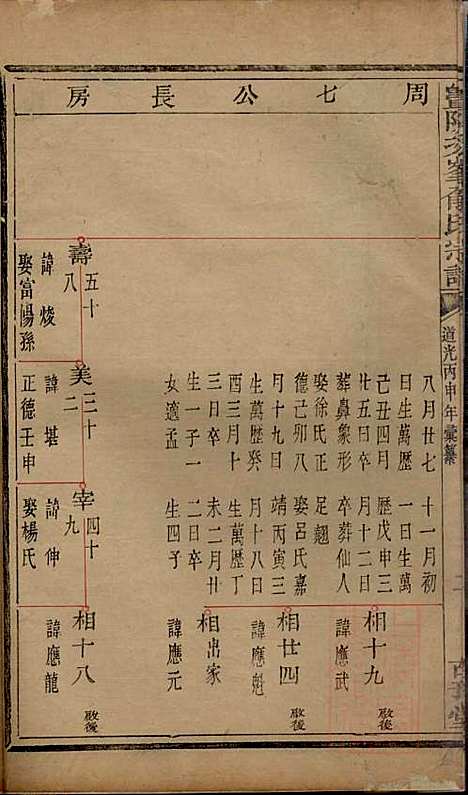 暨陽次峯俞氏宗譜
道光丙申年彙纂
周七公長房
壽五十八
諱焌
娶富陽孫
八月廿七
日生萬歷
己丑四月
廿五日卒
葬鼻象形
娶徐氏正
德己卯八
月十九日
生萬歷癸
酉三月十
三日卒
生一子一
女適孟
美三十二
諱堪
正德壬申
十一月初
一日生萬
歷戊申三
月十二日
卒葬仙人
足翹
娶呂氏嘉
靖丙寅三
月十八日
生萬歷丁
未二月廿
二日卒
生四子
宰四十九
諱伸
娶楊氏
相十九
諱應武
相廿四
諱應魁
相出家
諱應元
相十八
諱應龍